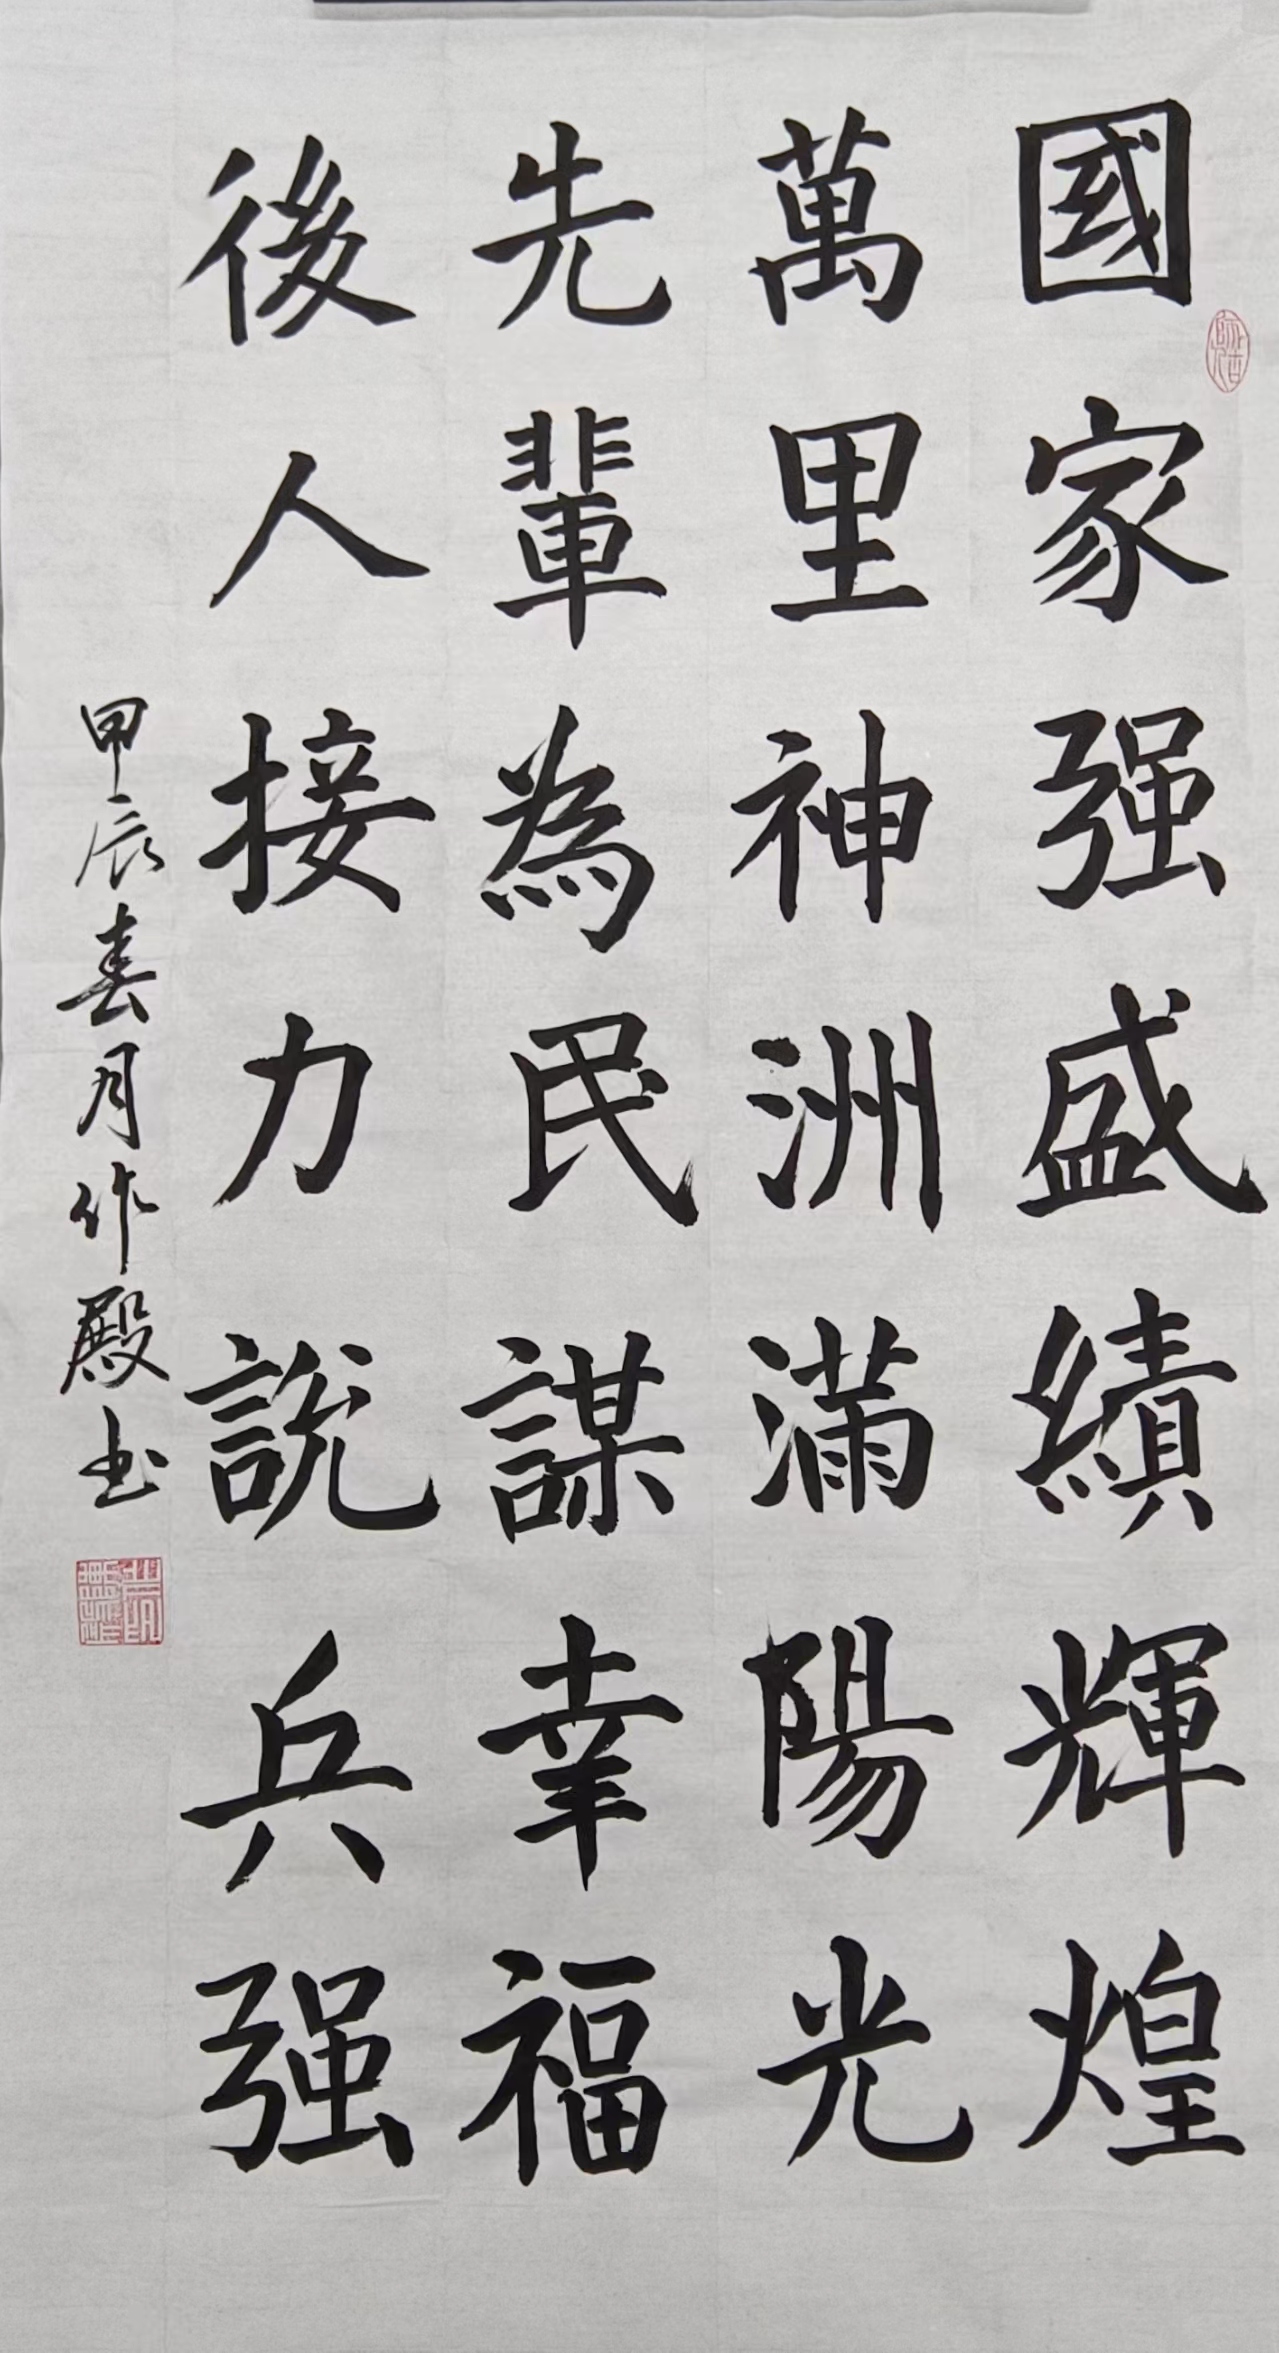 國家强盛績輝煌
萬里神洲滿陽光
先輩為民謀幸福
後人接力説兵强
甲辰春月作殿书